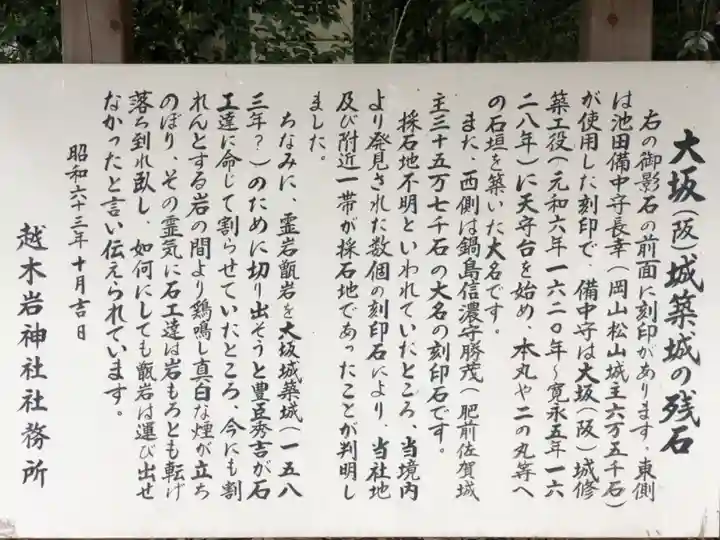 大坂(阪)城築城の残石
右の御影石の前面に刻印があります。東側
は池田備中守長幸(岡山松山城主六万五千石)
が使用した刻印で、備中守は大坂(阪)城修
築工役(元和六年一六二〇年～寛永五年一六
二八年)に天守台を始め、本丸や二の丸等へ
の石垣を築いた大名です。
また、西側は鍋島信濃守勝茂(肥前佐賀城
主三十五万七千石の大名の刻印石です。
採石地不明といわれていたところ、当境内
より発見された数個の刻印石により、当社地
及び附近一帯が採石地であったことが判明し
ました。
ちなみに、霊岩甑岩を大坂城築城(一五八
三年?)のために切り出そうと豊臣秀吉が石
工達に命じて割らせていたところ、今にも割
れんとする岩の間より鶏鳴し真白な煙が立ち
のぼり、その霊気に石工達は岩もろとも転げ
落ち倒れ臥し、如何にしても甑岩は運び出せ
なかったと言い伝えられています。
昭和六十三年十月吉日
越木岩神社社務所